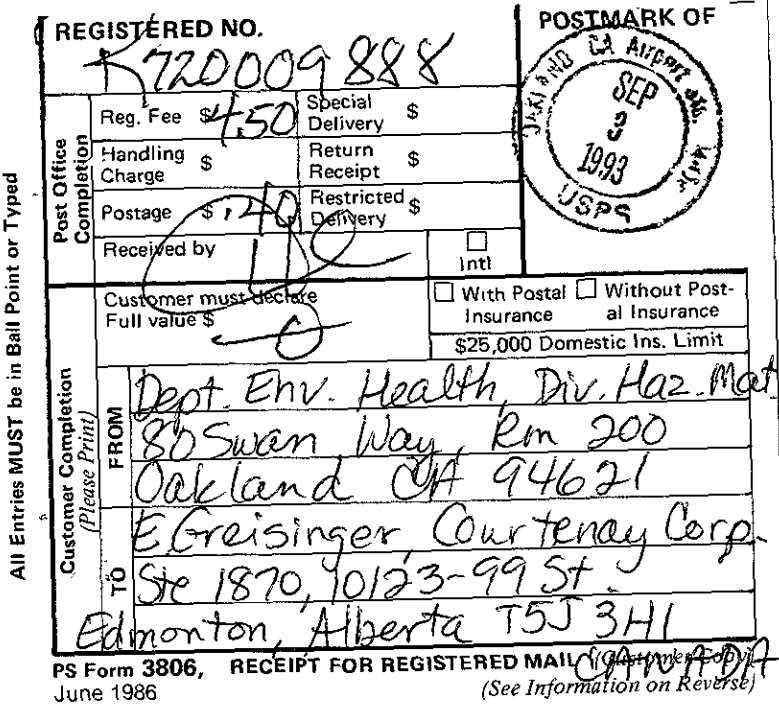 REGISTERED NO.
R720009888
POSTMARK OF
OAKLAND CA Airport
SEP
3
1993
USPS
All Entries MUST be in Ball Point or Typed
Post Office Completion
Reg. Fee $ 4.50 Special Delivery $
Handling Charge $ Return Receipt $
Postage $ .40 Restricted Delivery $
Received by
Intl
Customer must declare Full value $ 0
With Postal Insurance Without Postal Insurance
$25,000 Domestic Ins. Limit
Customer Completion
(Please Print)
FROM
Dept. Env. Health, Div. Haz. Mat
80 Swan Way, Rm 200
Oakland CA 94621
TO
E. Greisinger, Courtenay Corp.
Ste 1870, 10123-99 St
Edmonton, Alberta T5J 3H1
CANADA
PS Form 3806, RECEIPT FOR REGISTERED MAIL (Customer Copy)
June 1986 (See Information on Reverse)